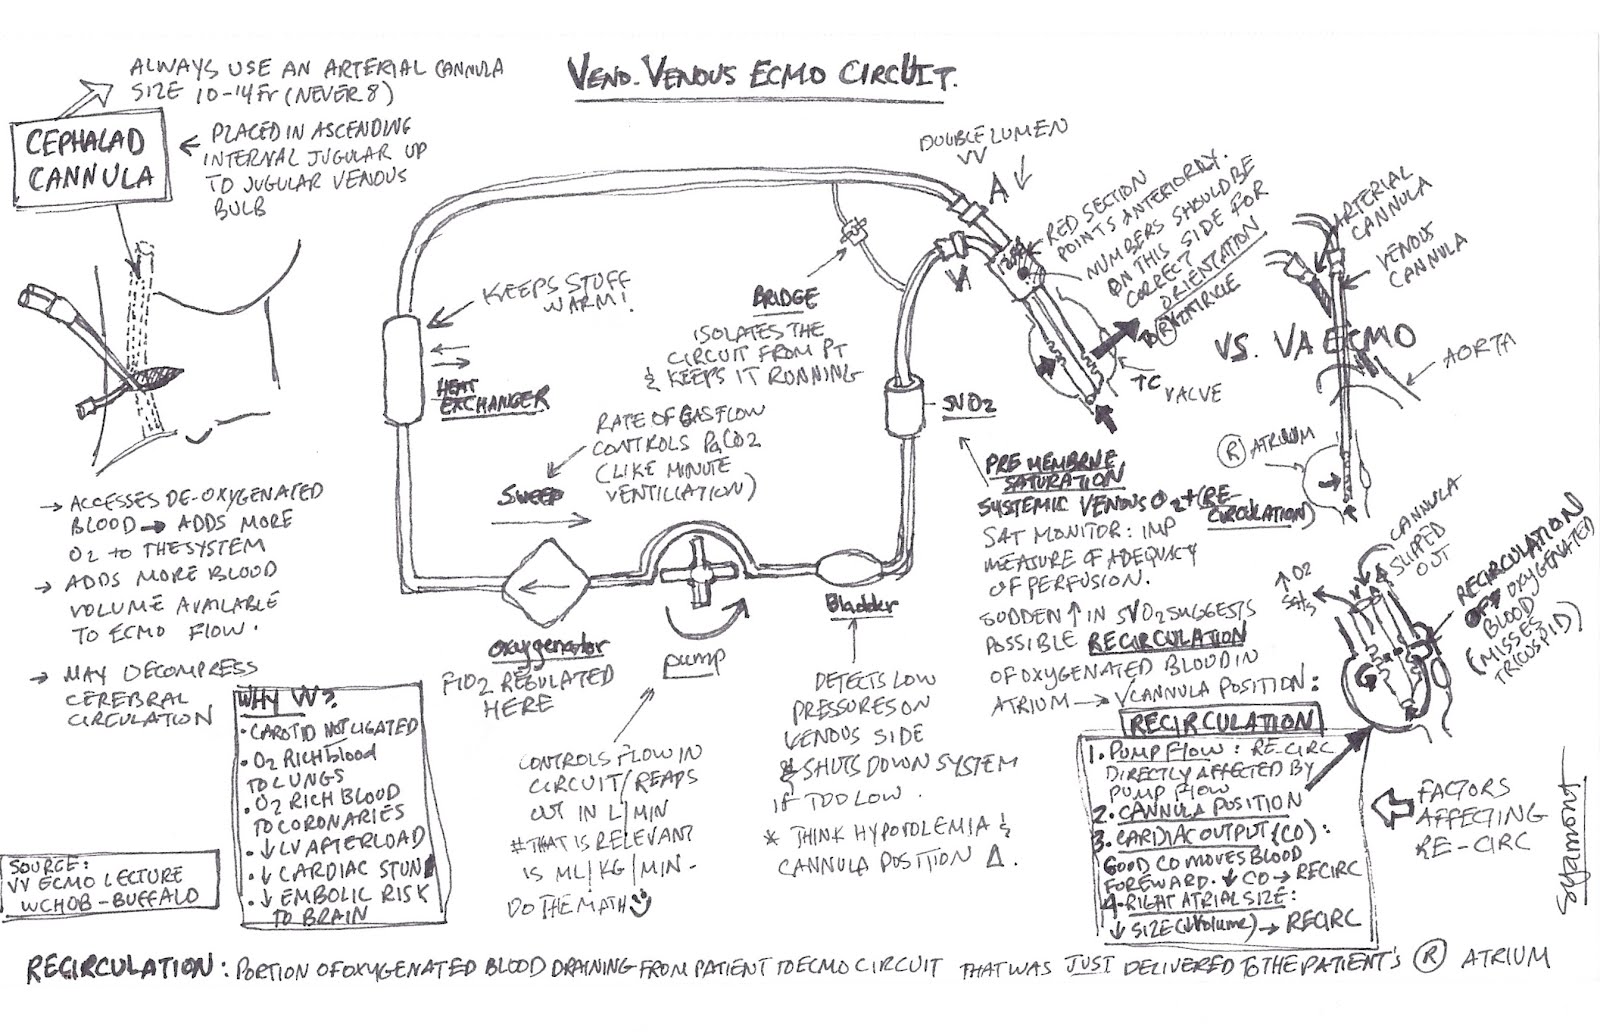 VENO-VENOUS ECMO CIRCUIT.
ALWAYS USE AN ARTERIAL CANNULA
SIZE 10-14Fr (NEVER 8)
CEPHALAD
CANNULA
PLACED IN ASCENDING
INTERNAL JUGULAR UP
TO JUGULAR VENOUS
BULB
→ ACCESSES DE-OXYGENATED
BLOOD → ADDS MORE
O2 TO THE SYSTEM
→ ADDS MORE BLOOD
VOLUME AVAILABLE
TO ECMO FLOW.
→ MAY DECOMPRESS
CEREBRAL
CIRCULATION
WHY VV?
• CAROTID NOT LIGATED
• O2 RICH blood
TO LUNGS
• O2 RICH BLOOD
TO CORONARIES
• ↓ LV AFTERLOAD
• ↓ CARDIAC STUN
• ↓ EMBOLIC RISK
TO BRAIN
SOURCE:
VV ECMO LECTURE
WCHOB-BUFFALO
KEEPS STUFF
WARM!
HEAT
EXCHANGER
BRIDGE
ISOLATES THE
CIRCUIT FROM PT
& KEEPS IT RUNNING
RATE OF GAS FLOW
CONTROLS PaCO2
(LIKE MINUTE
VENTILIATION)
SWEEP
oxygenator
FIO2 REGULATED
HERE
pump
CONTROLS FLOW IN
CIRCUIT/READS
OUT IN L/MIN
# THAT IS RELEVANT
IS ML/KG/MIN-
DO THE MATH
Bladder
DETECTS LOW
PRESSURES ON
VENOUS SIDE
& SHUTS DOWN SYSTEM
IF TOO LOW.
* THINK HYPOVOLEMIA &
CANNULA POSITION Δ.
SVO2
PRE MEMBRNE
SATURATION
SYSTEMIC VENOUS O2 + (RE-
CIRCULATION)
SAT MONITOR: IMP
MEASURE OF ADEQUACY
OF PERFUSION.
SUDDEN ↑ IN SVO2 SUGGESTS
POSSIBLE RECIRCULATION
OF OXYGENATED BLOOD IN
ATRIUM → √ CANNULA POSITION:
DOUBLE LUMEN
VV
A
V
RED SECTION
POINTS ANTERIORLY.
NUMBERS SHOULD BE
ON THIS SIDE FOR
CORRECT
ORIENTATION
(R) VENTRICLE
TC
VALVE
VS. VA ECMO
ARTERIAL
CANNULA
VENOUS
CANNULA
AORTA
(R) ATRIUM
CANNULA
SLIPPED
OUT
↑O2
Sats
RECIRCULATION
OF OXYGENATED
BLOOD
(MISSES
TRICUSPID)
RECIRCULATION
1. PUMP FLOW: RE-CIRC
DIRECTLY AFFECTED BY
PUMP FLOW
2. CANNULA POSITION
3. CARDIAC OUTPUT (CO):
GOOD CO MOVES BLOOD
FOREWARD. ↓ CO → RECIRC
4. RIGHT ATRIAL SIZE:
↓ SIZE (↓Volume) → RECIRC
FACTORS
AFFECTING
RE-CIRC
RECIRCULATION: PORTION OF OXYGENATED BLOOD DRAINING FROM PATIENT TO ECMO CIRCUIT THAT WAS JUST DELIVERED TO THE PATIENT'S (R) ATRIUM